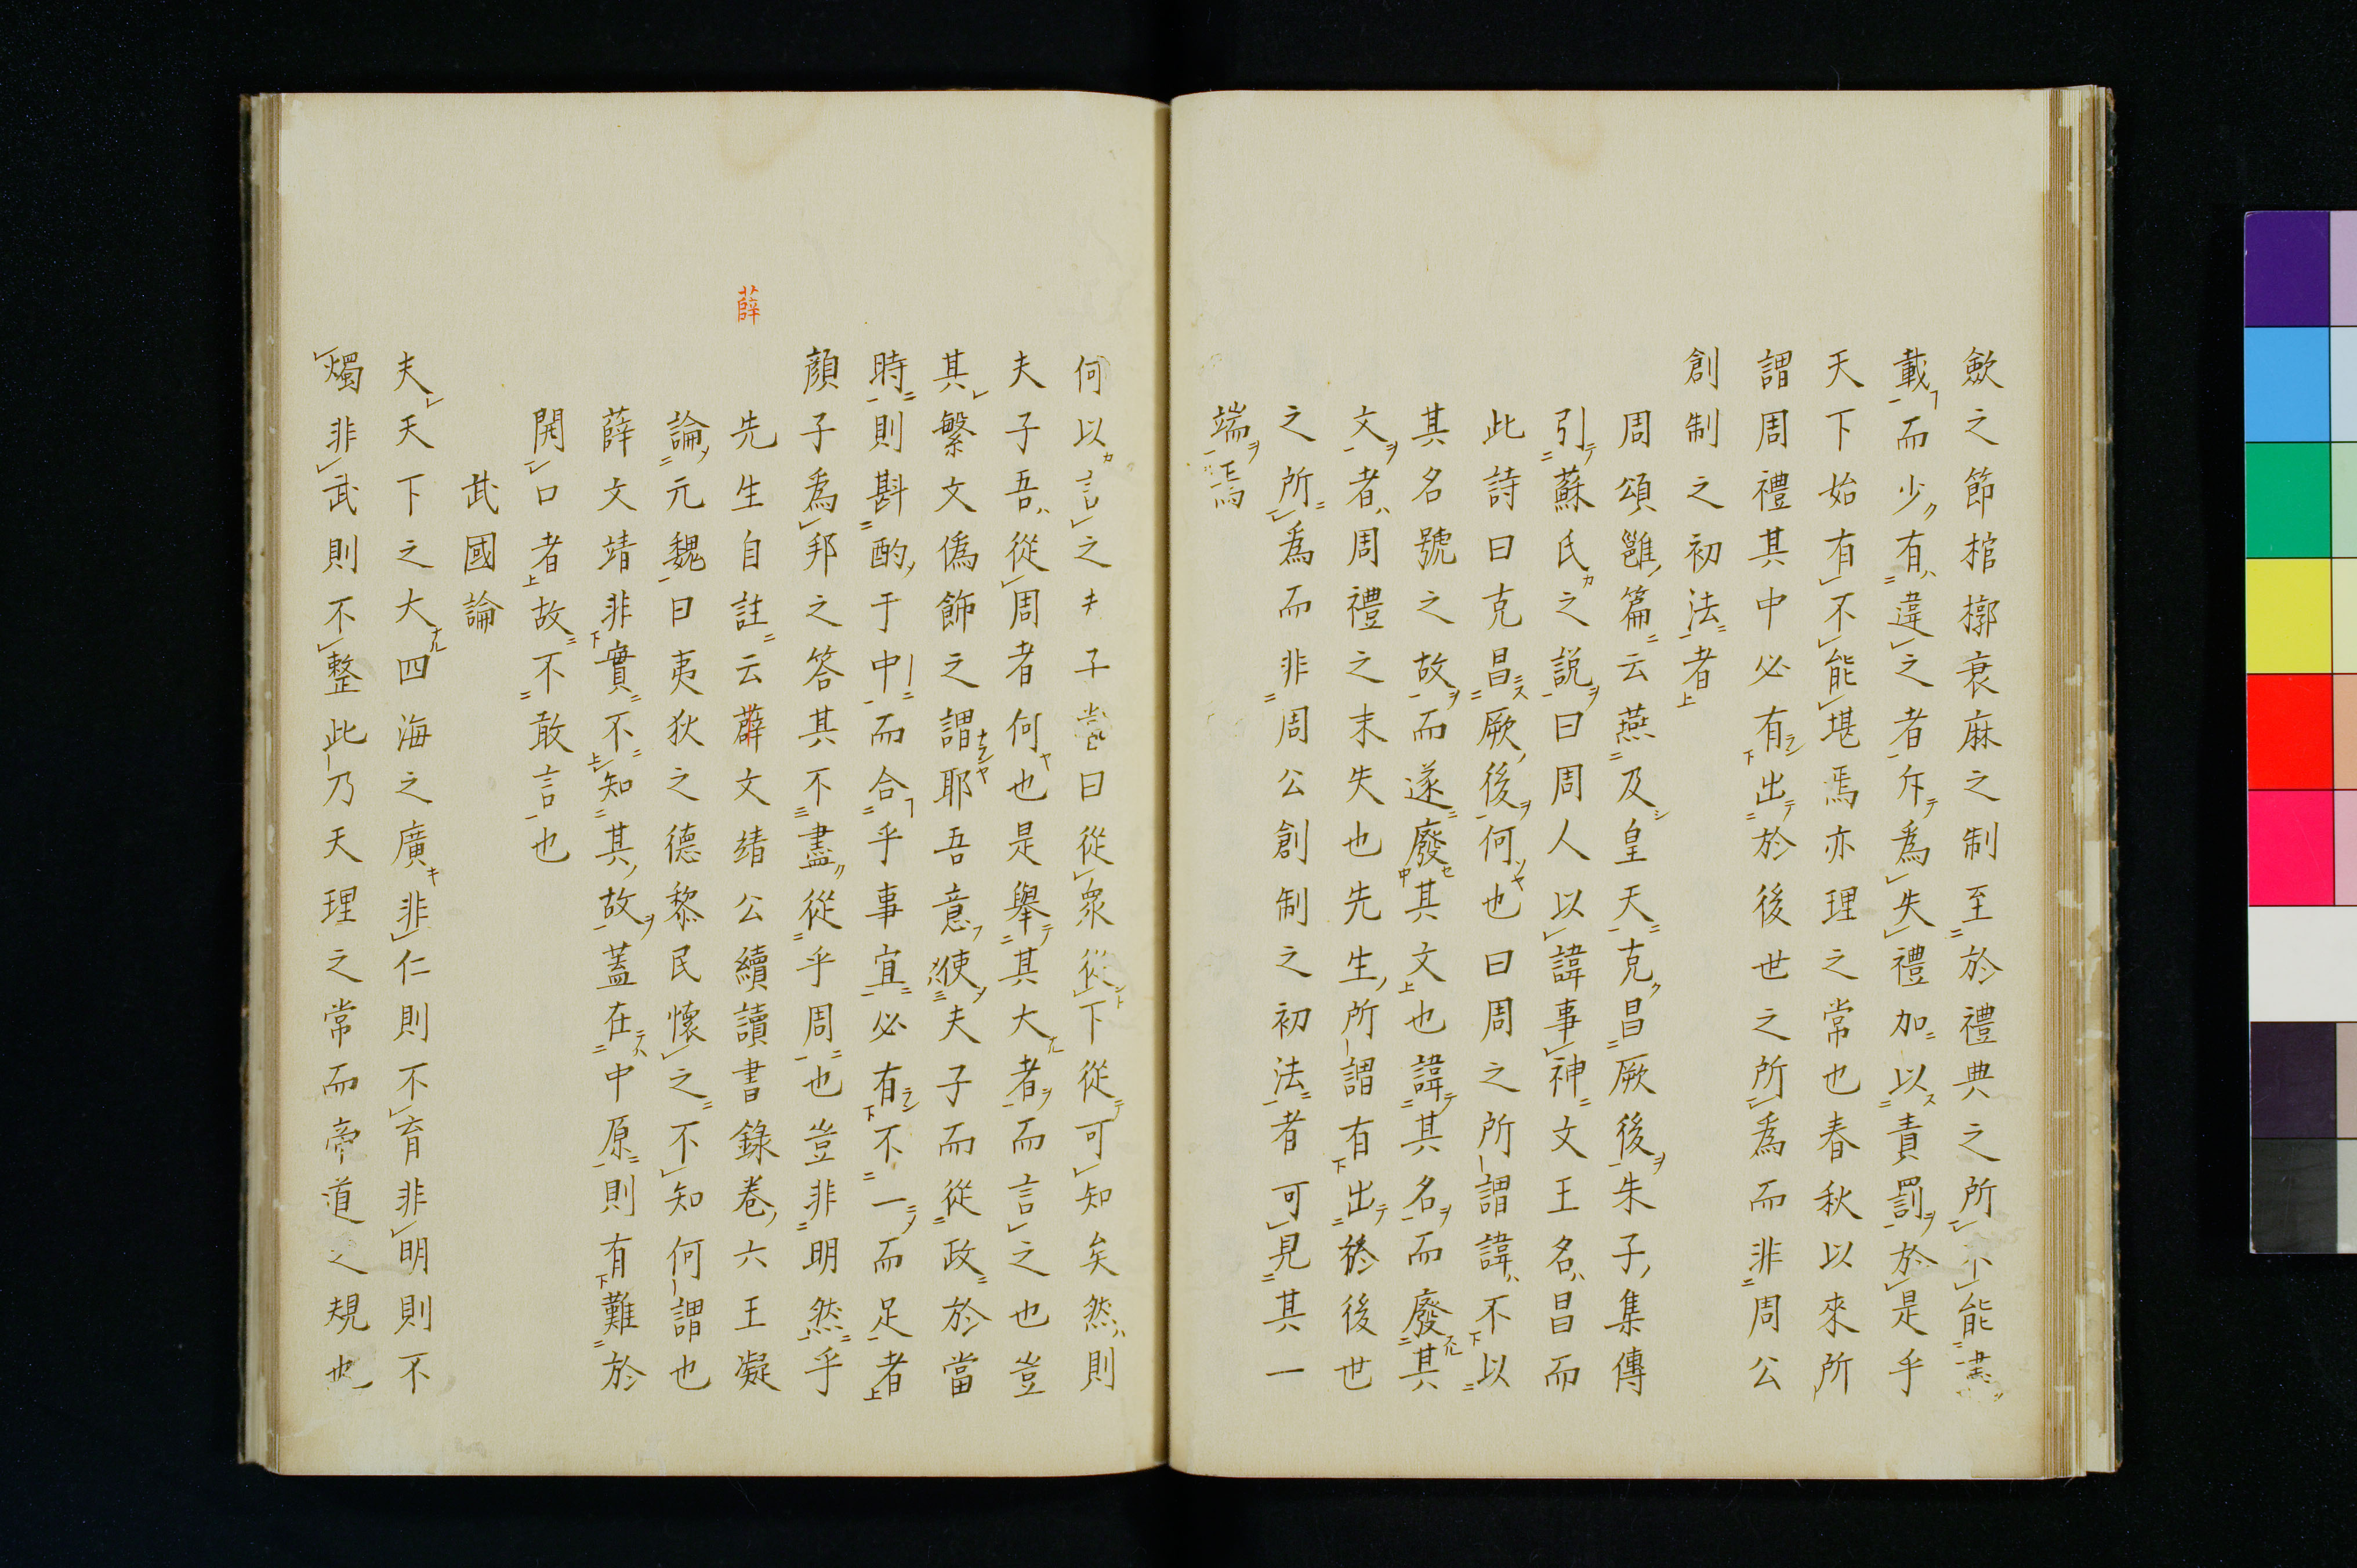 歛之節棺槨衰麻之制至於禮典之所不能載
載而少有違之者斥為失禮加以責罰於是乎
天下始有不能堪焉亦理之常也春秋以來所
謂周禮其中必有出於後世之所為而非周公
創制之初法者
周頌雝篇云燕及皇天克昌厥後朱子集傳
引蘇氏之説曰周人以諱事神文王名昌而
此詩曰克昌厥後何也曰周之所謂諱不以
其名號之故而遂廢其文也諱其名而廢其
文者周禮之末失也先生所謂有出於後世
之所為而非周公創制之初法者可見其一
端焉
何以言之夫子嘗曰從衆從下從可知矣然則
夫子吾從周者何也是舉其大者而言之也豈
其繁文偽飾之謂耶吾意使夫子而從政於當
時則斟酌于中而合乎事宜必有不一而足者
顔子為邦之答其不盡從乎周也豈非明然乎
先生自註云薜文靖公續讀書錄卷六王凝
論元魏曰夷狄之德黎民懷之不知何謂也
薛文靖非實不知其故蓋在中原則有難於
開口者故不敢言也
武國論
夫天下之大四海之廣非仁則不育非明則不
燭非武則不整此乃天理之常而帝道之規也
薛